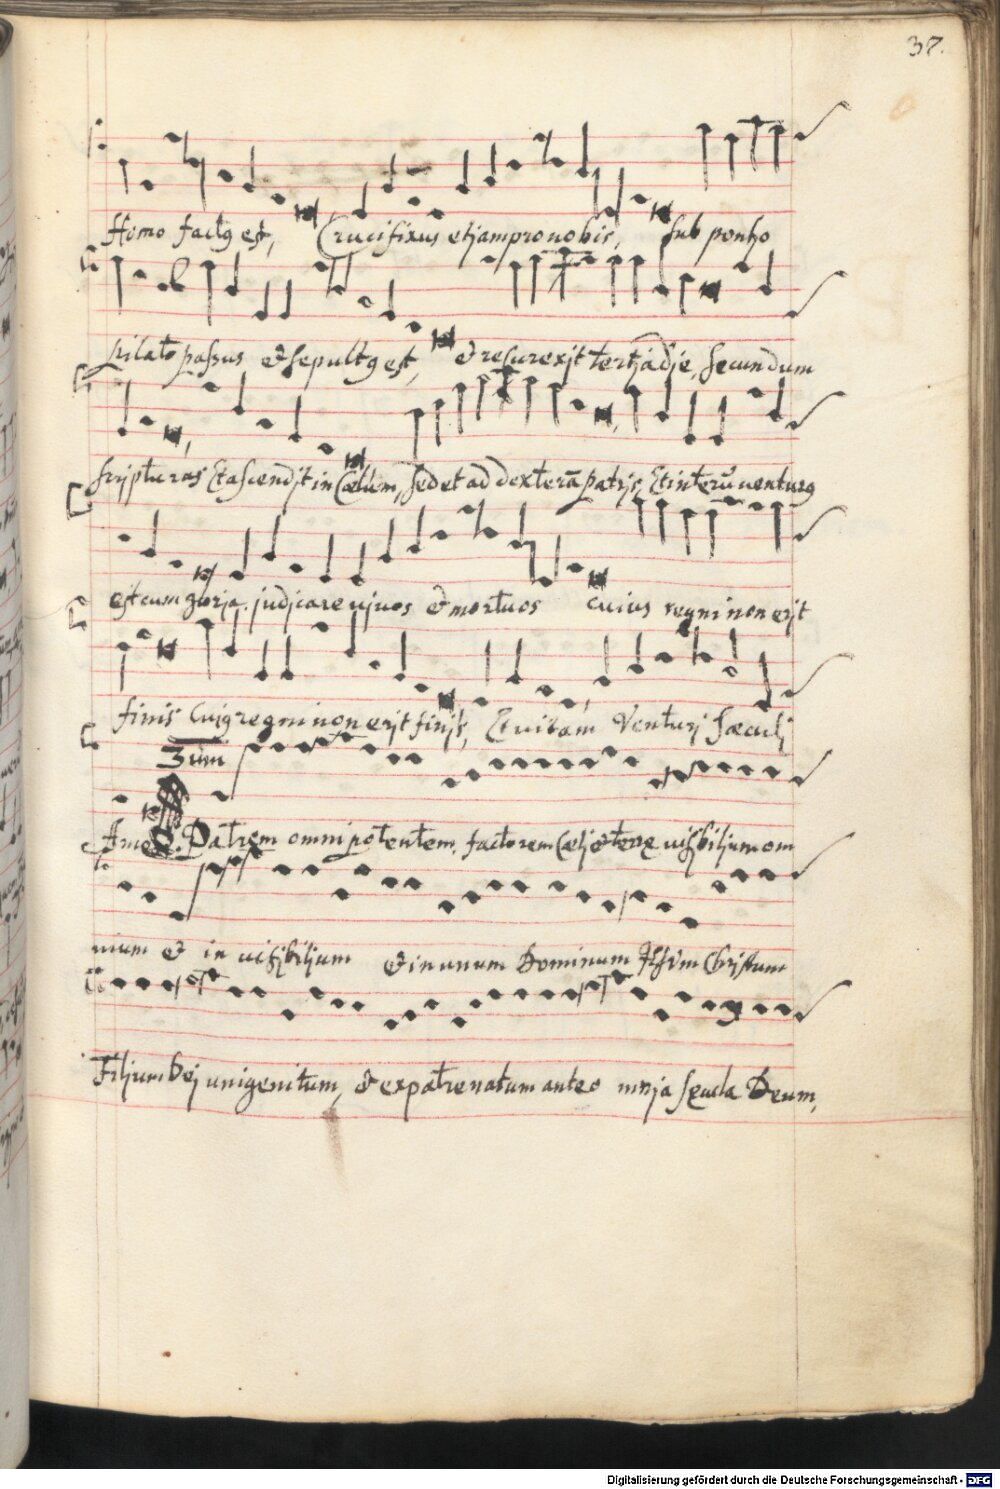 37.
Homo factꝰ est, Crucifixus etjam pro nobis, sub ponho
pilato passus et sepultꝰ est, et resurexjt tertja dje, secundum
scrjpturas Et ascendjt in Cælum, sedet ad dexterā patrjs, Et interū uenturꝰ
est cum glorja. judjcare vjuos et mortuos cuius regni non erjt
finis Cujꝰ regni non erjt finjs, Et uitam Venturj Sæculj
3um
Amen. Patrem omnipotentem, factorem Cælj et terræ uisjbiljum om
nium et in uisjbiljum et in unum Dominum Jesūm Chrjstum
Filjum Dej unigenitum, et ex patre natum ante o mnja sęcula Deum,
Digitalisierung gefördert durch die Deutsche Forschungsgemeinschaft - DFG